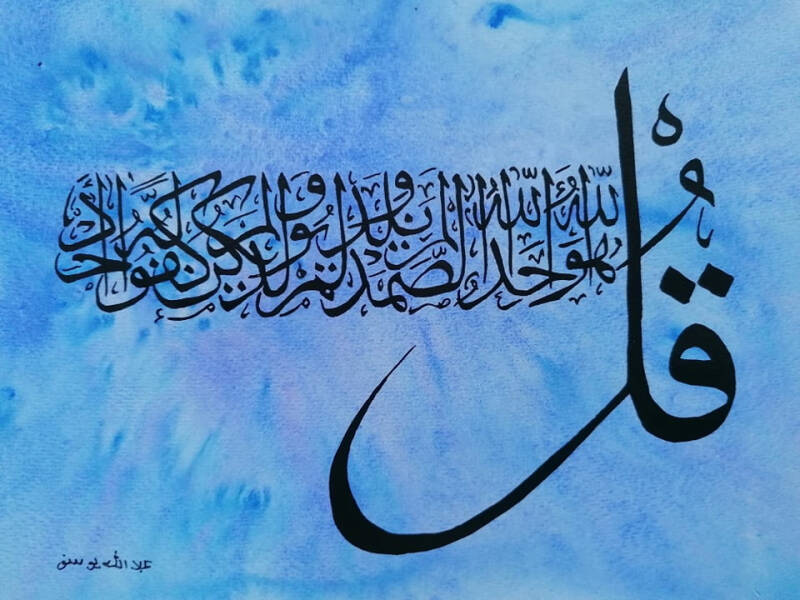 قُل هُوَ اللّٰهُ أَحَدٌ اللّٰهُ الصَّمَدُ لَمْ يَلِدْ وَلَمْ يُولَدْ وَلَمْ يَكُنْ لَهُ كُفُوًا أَحَدٌ
عبد الله يوسف